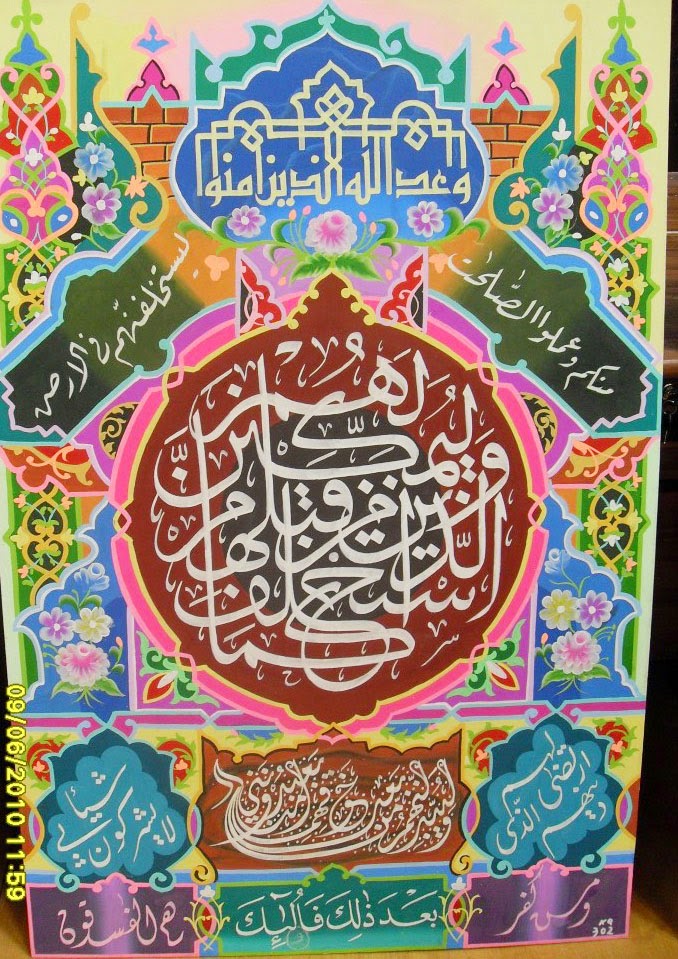 وعد الله الذين امنوا
منكم وعملوا الصّٰلحٰت
ليستخلفنّهم في الارض
كَمَا اسْتَخْلَفَ الَّذِينَ مِن قَبْلِهِمْ وَلَيُمَكِّنَنَّ لَهُمْ
دينهم الذي ارتضى لهم
وليبدلنهم من بعد خوفهم امنا يعبدونني
لا يشركون بي شيئا
ومن كفر
بعد ذٰلك فأولٰئك
هم الفسقون
302
09/06/2010 11:59